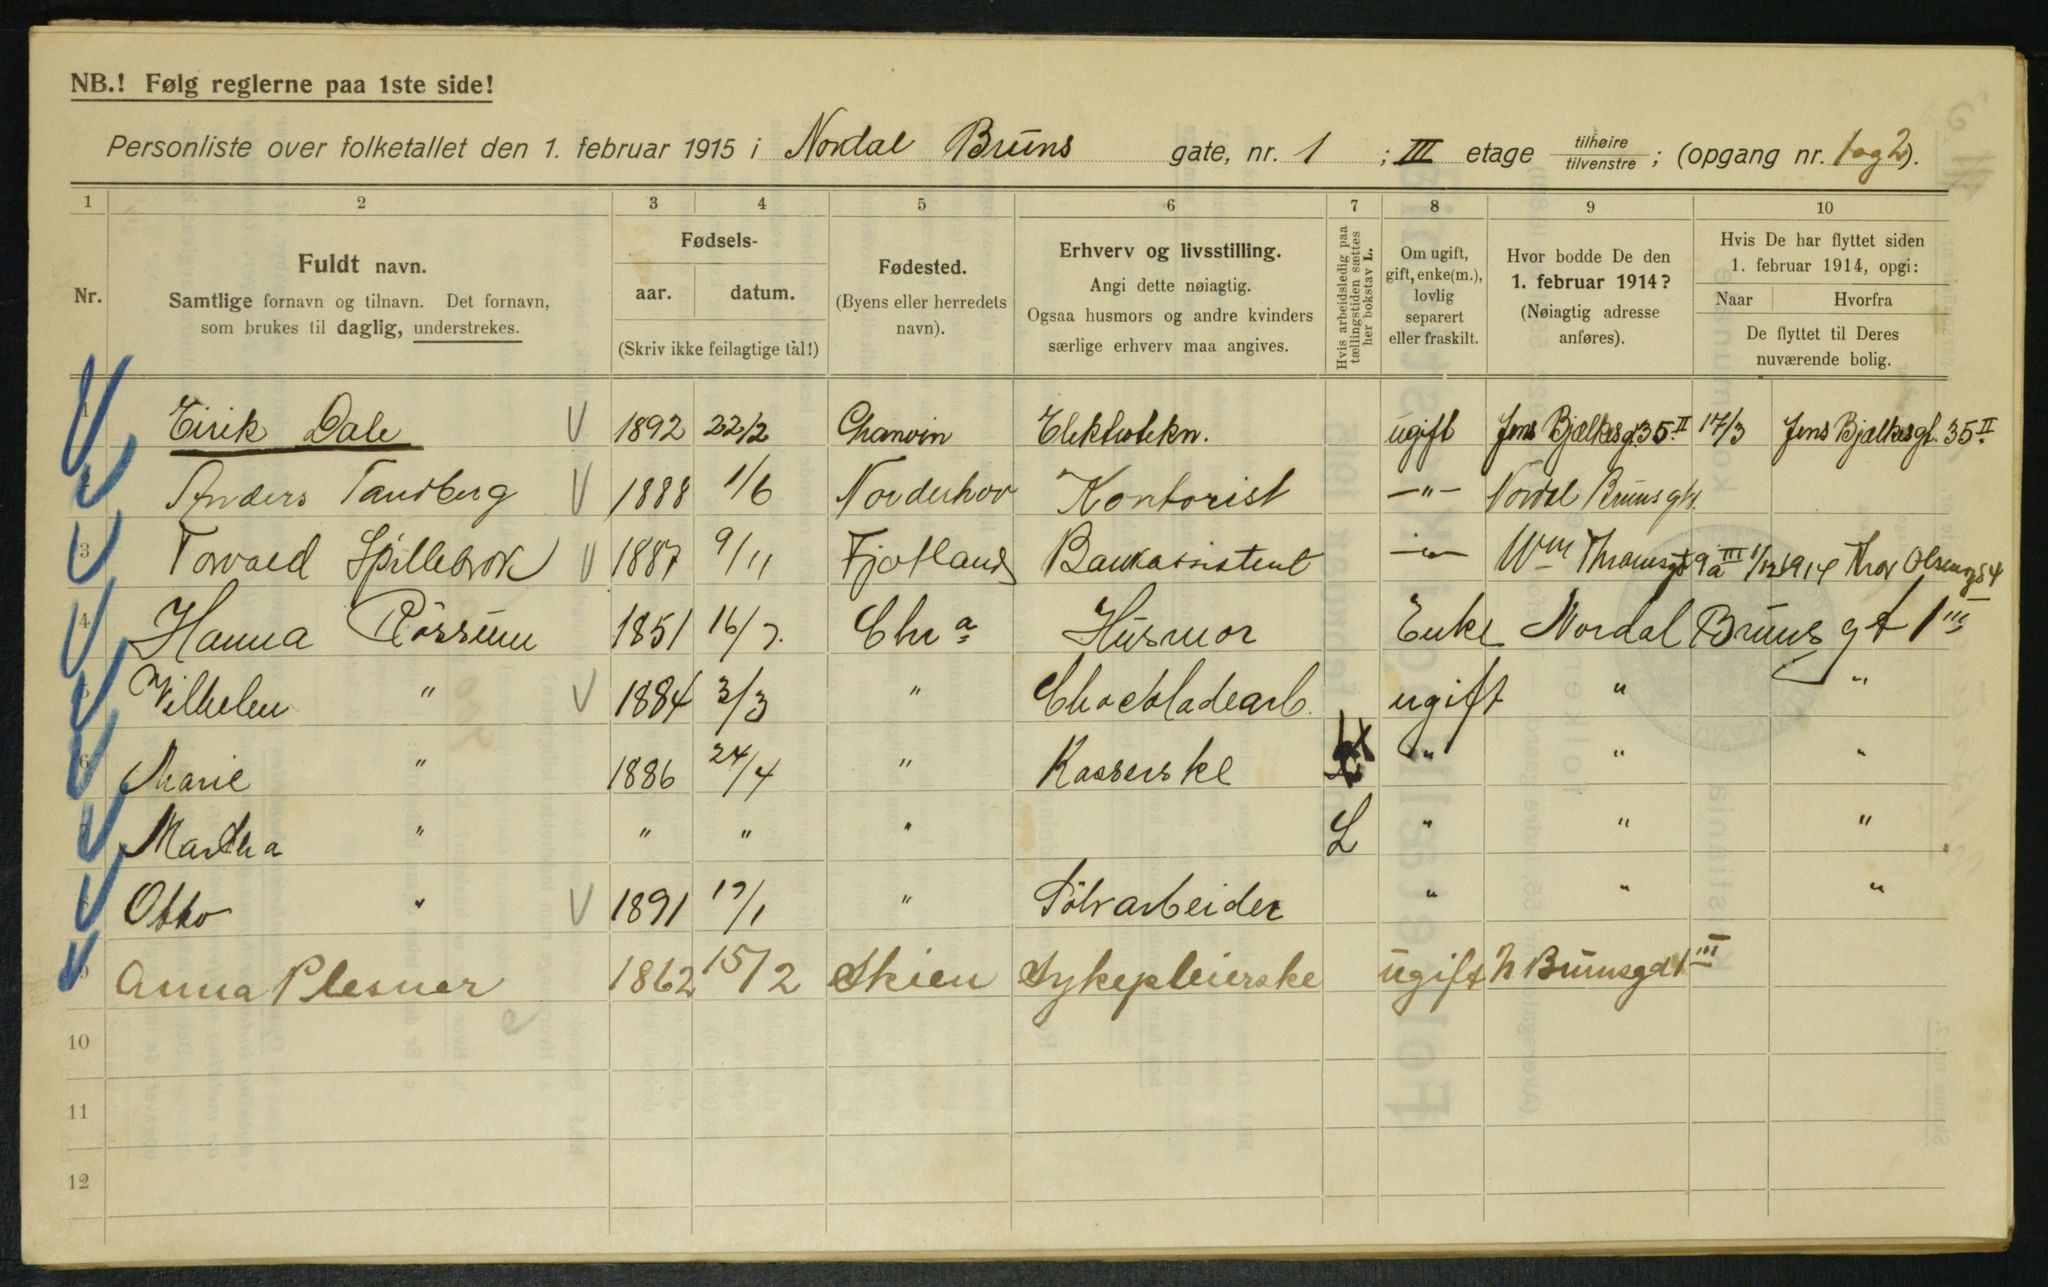 NB.! Følg reglerne paa 1ste side!
Personliste over folketallet den 1. februar 1915 i Nordal Bruns gate, nr. 1 ; III etage tilhøire tilvenstre ; (opgang nr. 1 og 2).
1 2 3 4 5 6 7 8 9 10
Nr.
Fuldt navn.
Samtlige fornavn og tilnavn. Det fornavn,
som brukes til daglig, understrekes.
Fødsels-
aar. datum.
(Skriv ikke feilagtige tal!)
Fødested.
(Byens eller herredets
navn).
Erhverv og livsstilling.
Angi dette nøiagtig.
Ogsaa husmors og andre kvinders
særlige erhverv maa angives.
Hvis arbeidsledig paa
tællingstiden sættes
her bokstav L.
Om ugift,
gift, enke(m.),
lovlig
separert
eller fraskilt.
Hvor bodde De den
1. februar 1914?
(Nøiagtig adresse
anføres).
Hvis De har flyttet siden
1. februar 1914, opgi:
Naar Hvorfra
De flyttet til Deres
nuværende bolig.
1 Eirik Dale 1892 22/2 Granvin Elektrotekn. ugift Jens Bjelkesg. 35 II 17/3 Jens Bjelkesgt. 35 II
Anders Tandberg 1888 1/6 Norderhov Kontorist —"— Nordal Brunsgt.
3 Torvald Spillebrok 1887 9/11 Fjotland Bankassistent —"— Wm Thranesgt 9a III 1/12 1914 Thor Olsensgt 4
4 Hanna Røssum 1851 16/7. Chr a Husmor Enke Nordal Bruns gt 1 III
5 Vilhelm " 1884 3/3 " Chockoladearb. ugift " "
6 Marie " 1886 24/4 " Kasserske " " "
Martha " " " " L " " "
8 Otto " 1891 19/1 " Sølvarbeider " " "
9 Anna Plesner 1862 15/2 Skien Sykepleierske ugift N Brunsgat 1 III
10
11
12